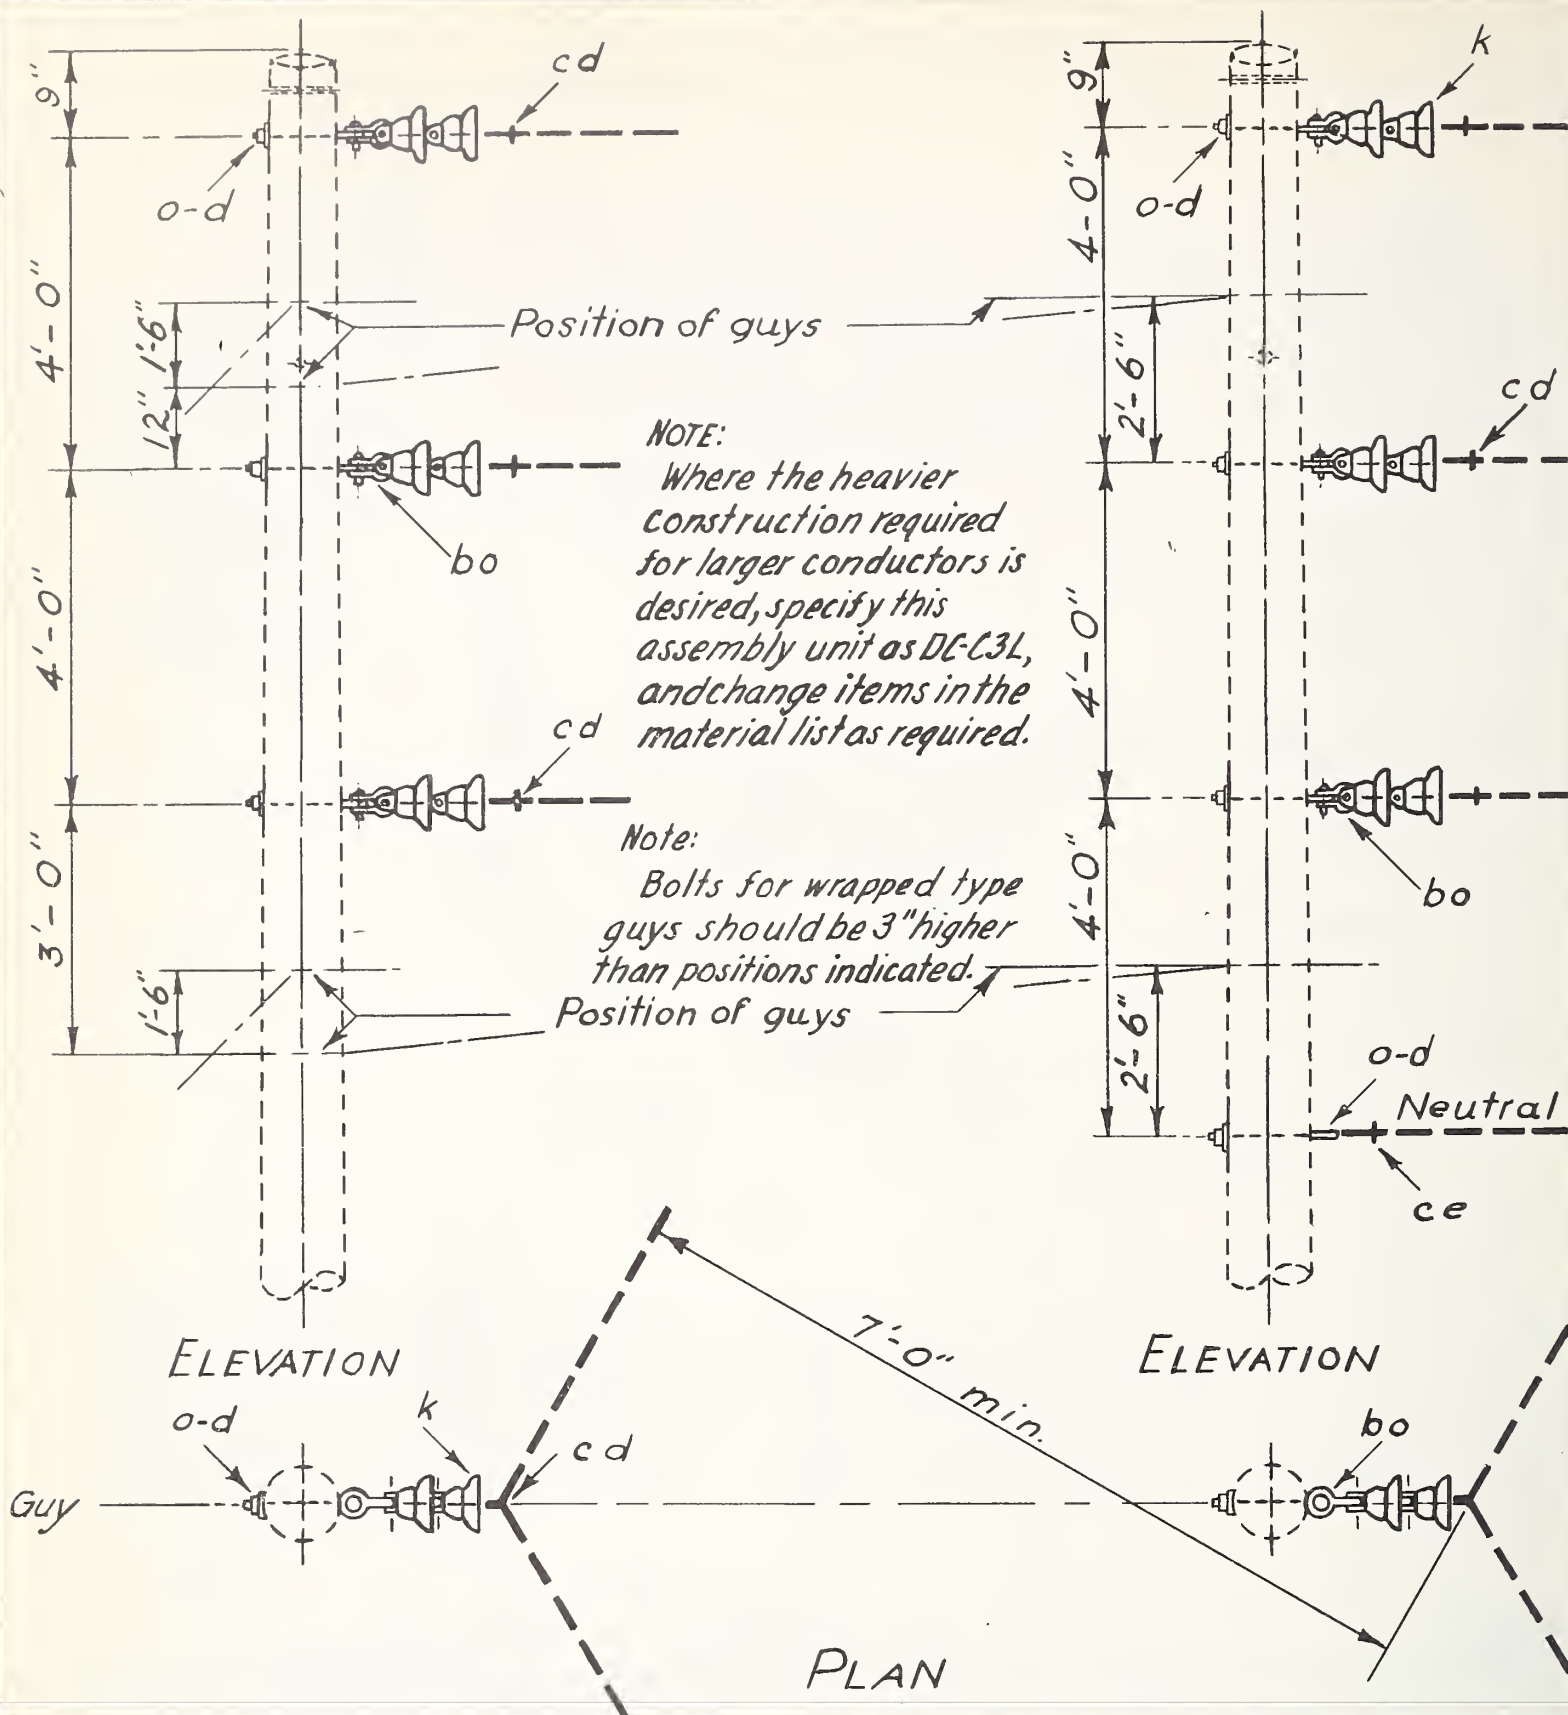 9"
cd
o-d
4'-0"
1'-6"
12"
Position of guys
bo
4'-0"
cd
3'-0"
1'-6"
Position of guys
ELEVATION
NOTE:
Where the heavier
construction required
for larger conductors is
desired, specify this
assembly unit as DC-C3L,
and change items in the
material list as required.
Note:
Bolts for wrapped type
guys should be 3" higher
than positions indicated.
9"
k
o-d
4'-0"
2'-6"
cd
4'-0"
bo
4'-0"
2'-6"
o-d
Neutral
ce
ELEVATION
7'-0" min.
o-d
k
cd
bo
Guy
PLAN